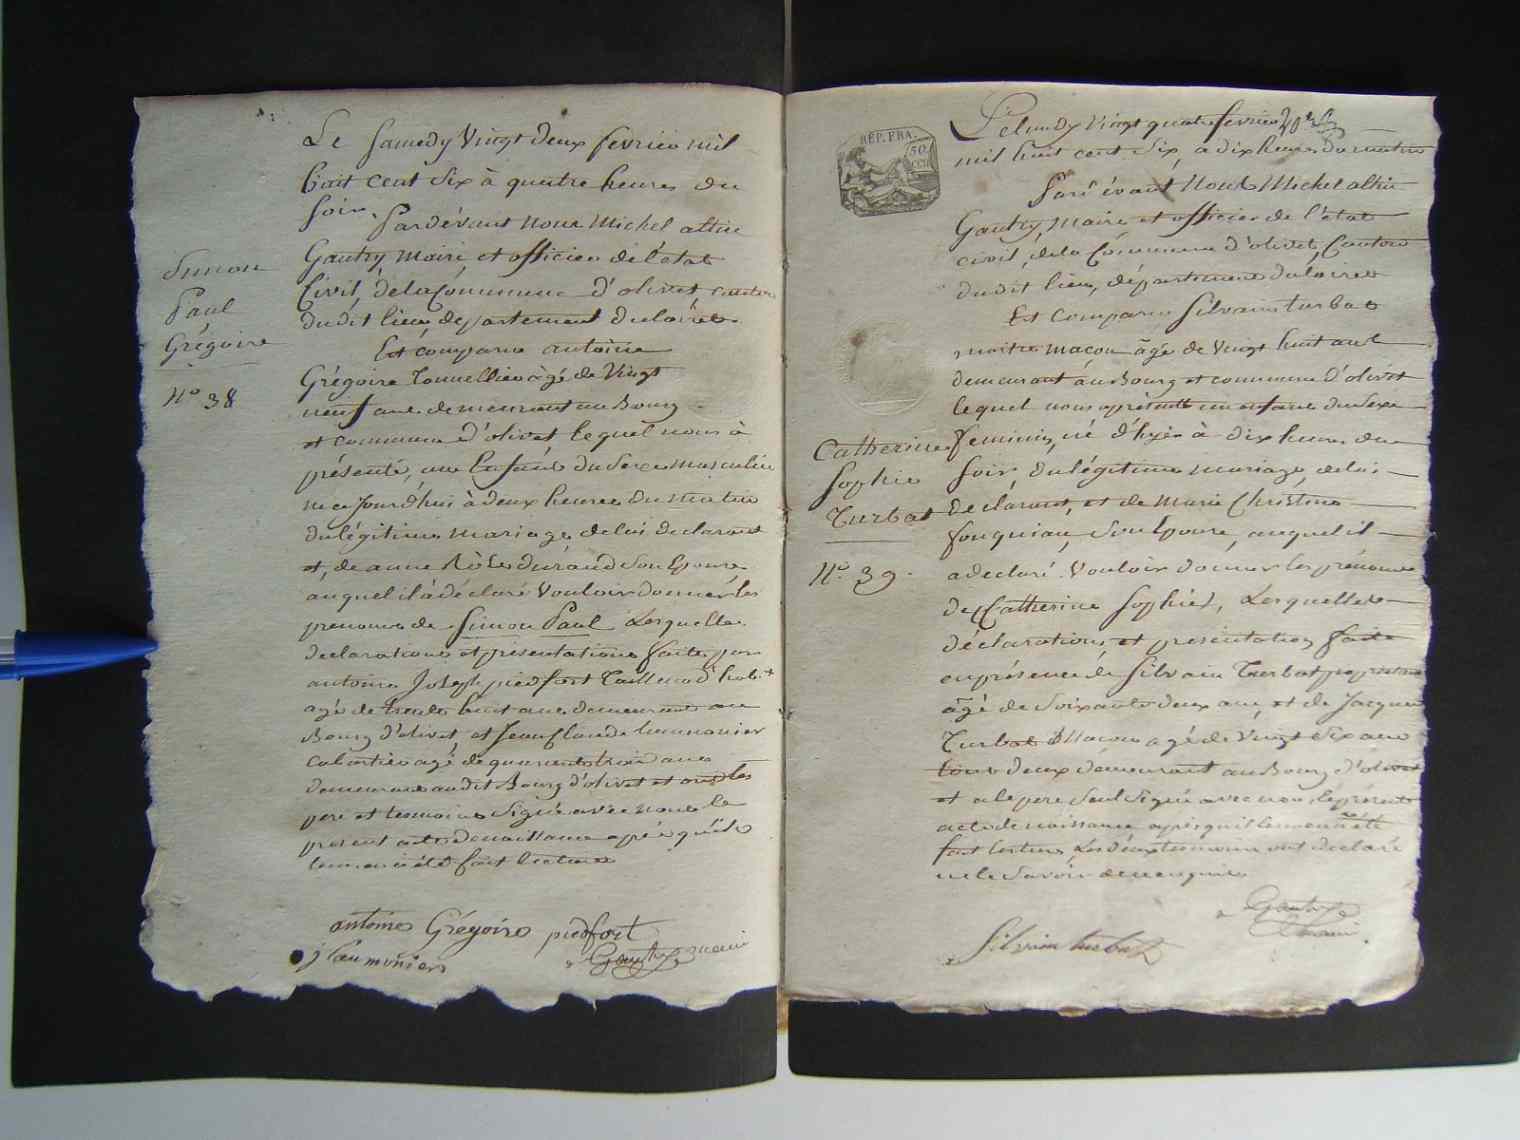 Simon
Paul
Grégoire
N° 38
Le Samedy Vingt deux fevrier mil
huit cent Six à quatre heures du
Soir. Pardevant Nous Michel altin
Gautry Maire et officier de l'état
Civil, de la Commune d'olivet canton
dudit lieu, departement du loiret
Est comparu antoine
Grégoire Tonnellier âgé de Vingt
neuf ans demeurant au Bourg
et commune d'olivet, lequel nous à
présenté, un Enfant du Sexe masculin
né ce jourd'hui à deux heures du matin
du légitime mariage de lui declarant
et, de anne Rose durand Son Epouse
auquel il à déclaré Vouloir donner les
prenoms de Simon Paul Lesquelles
declarations et présentations faites par
antoine Joseph piedfort Tailleur d'hab.t
agé de trente huit ans demeurant au
Bourg d'olivet, et Jean Claude laumonier
cabartier agé de quarante trois ans
demeurant audit Bourg d'olivet et ont les
pere et temoins Signé avec nous le
present acte de naissance après qu'il
leur en à été fait lecture
antoine Grégoire piedfort
j C laumonier Gautry maire
REP. FRA.
50
CEN
Le lundy Vingt quatre fevrier
mil huit cent Six, a dix heures du matin
Pardevant Nous Michel altin
Gautry, Maire et officier de l'état
civil, de la Commune d'olivet, Canton
dudit lieu, département du loiret
Est comparu Silvain turbat
maitre macon âgé de Vingt huit ans
demeurant au Bourg et commune d'olivet
lequel nous a présenté un enfant du Sexe
Catherine
Sophie
Turbat
N° 39
feminin, né d'hyer à dix heures du
Soir, du légitime mariage, de lui
declarant, et de Marie Christine
fouqueau, Son Epouse, auquel il
a declaré Vouloir donner les prénoms
de Catherine Sophie, Lesquelles
déclarations et presentations faite
en présence de Silvain Turbat proprietaire
âgé de Soixante deux ans, et de Jacques
Turbat Macon agé de Vingt Six ans
tous deux demeurant au Bourg d'olivet
et a le pere Seul Signé avec nous le présent
acte de naissance après qu'il leur en à été
fait lecture, Les deux temoins ont declaré
ne le Savoir de ce enquis
Gautry
maire
Silvain turbat